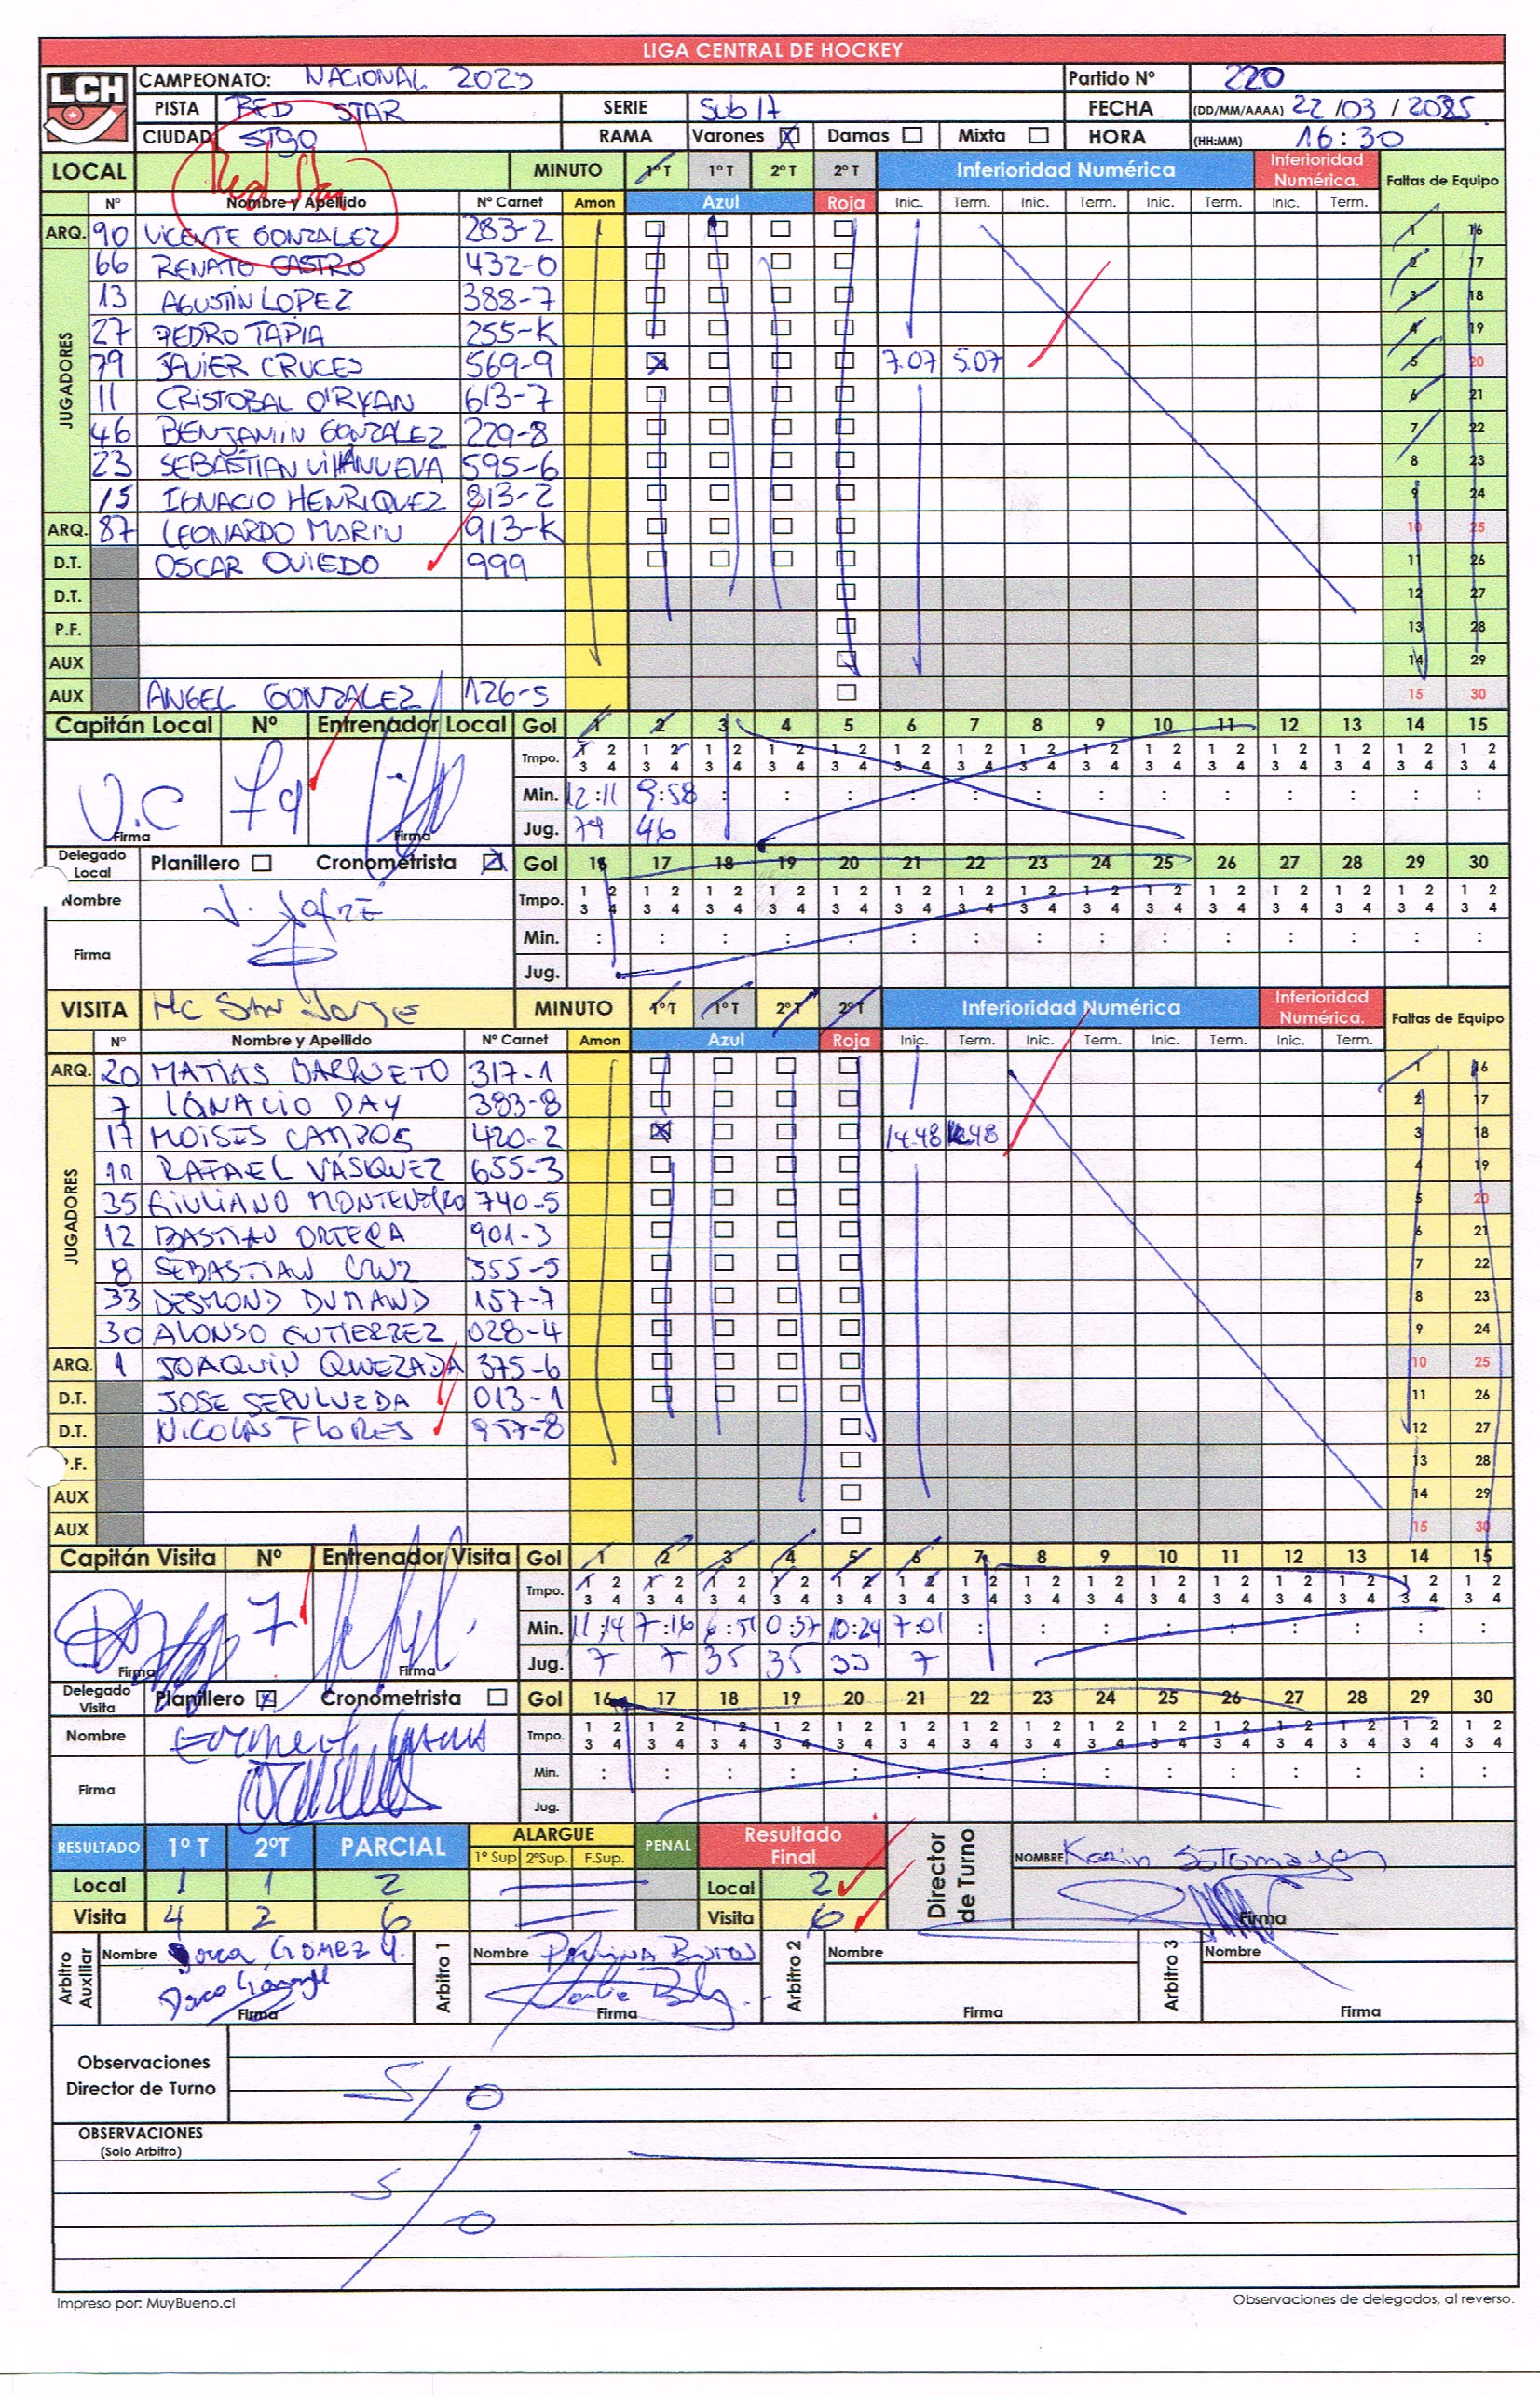 LIGA CENTRAL DE HOCKEY
LCH
CAMPEONATO: NACIONAL 2025 Partido Nº 220
PISTA RED STAR SERIE Sub 17 FECHA (DD/MM/AAAA) 22/03/2025
CIUDAD STGO RAMA Varones X Damas Mixta HORA (HH:MM) 16:30
LOCAL Red Star MINUTO 1º T 1º T 2º T 2º T Inferioridad Numérica Inferioridad Numérica. Faltas de Equipo
Nº Nombre y Apellido Nº Carnet Amon Azul Roja Inic. Term. Inic. Term. Inic. Term. Inic. Term.
ARQ. 90 VICENTE GONZALEZ 283-2 1 16
JUGADORES
66 RENATO CASTRO 432-0 2 17
13 AGUSTIN LOPEZ 388-7 3 18
27 PEDRO TAPIA 255-K 4 19
79 JAVIER CRUCES 569-9 X 7.07 5.07 5 20
11 CRISTOBAL O'RYAN 613-7 6 21
46 BENJAMIN GONZALEZ 229-8 7 22
23 SEBASTIAN VILLANUEVA 595-6 8 23
15 IGNACIO HENRIQUEZ 813-2 9 24
ARQ. 87 LEONARDO MARIN 913-K 10 25
D.T. OSCAR OVIEDO 999 11 26
D.T. 12 27
P.F. 13 28
AUX 14 29
AUX ANGEL GONZALEZ 126-5 15 30
Capitán Local Nº Entrenador Local Gol 1 2 3 4 5 6 7 8 9 10 11 12 13 14 15
Tmpo. 1 2 3 4 1 2 3 4 1 2 3 4 1 2 3 4 1 2 3 4 1 2 3 4 1 2 3 4 1 2 3 4 1 2 3 4 1 2 3 4 1 2 3 4 1 2 3 4 1 2 3 4 1 2 3 4 1 2 3 4
79 Min. 12:11 9:58 : : : : : : : : : : : : :
Firma Firma Jug. 79 46
Delegado Local Planillero Cronometrista X Gol 16 17 18 19 20 21 22 23 24 25 26 27 28 29 30
Nombre Tmpo. 1 2 3 4 1 2 3 4 1 2 3 4 1 2 3 4 1 2 3 4 1 2 3 4 1 2 3 4 1 2 3 4 1 2 3 4 1 2 3 4 1 2 3 4 1 2 3 4 1 2 3 4 1 2 3 4 1 2 3 4
Firma Min. : : : : : : : : : : : : : : :
Jug.
VISITA HC SAN Jorge MINUTO 1º T 1º T 2º T 2º T Inferioridad Numérica Inferioridad Numérica. Faltas de Equipo
Nº Nombre y Apellido Nº Carnet Amon Azul Roja Inic. Term. Inic. Term. Inic. Term. Inic. Term.
ARQ. 20 MATIAS BARRUETO 317-1 1 16
JUGADORES
7 IGNACIO DAY 383-8 2 17
17 MOISES CAMPOS 420-2 X 14.48 12.48 3 18
11 RAFAEL VÁSQUEZ 655-3 4 19
35 GIULIANO MONTENEGRO 740-5 5 20
12 BASTIAN ORTEGA 901-3 6 21
8 SEBASTIAN CRUZ 355-5 7 22
33 DESMOND DURAND 157-7 8 23
30 ALONSO GUTIERREZ 028-4 9 24
ARQ. 1 JOAQUIN QUEZADA 375-6 10 25
D.T. JOSE SEPULVEDA 013-1 11 26
D.T. NICOLAS FLORES 957-8 12 27
P.F. 13 28
AUX 14 29
AUX 15 30
Capitán Visita Nº Entrenador Visita Gol 1 2 3 4 5 6 7 8 9 10 11 12 13 14 15
Tmpo. 1 2 3 4 1 2 3 4 1 2 3 4 1 2 3 4 1 2 3 4 1 2 3 4 1 2 3 4 1 2 3 4 1 2 3 4 1 2 3 4 1 2 3 4 1 2 3 4 1 2 3 4 1 2 3 4 1 2 3 4
7 Min. 11:14 7:16 6:51 0:37 10:24 7:01 : : : : : : : : :
Firma Firma Jug. 7 7 35 35 33 7
Delegado Visita Planillero X Cronometrista Gol 16 17 18 19 20 21 22 23 24 25 26 27 28 29 30
Nombre Tmpo. 1 2 3 4 1 2 3 4 1 2 3 4 1 2 3 4 1 2 3 4 1 2 3 4 1 2 3 4 1 2 3 4 1 2 3 4 1 2 3 4 1 2 3 4 1 2 3 4 1 2 3 4 1 2 3 4 1 2 3 4
Firma Min. : : : : : : : : : : : : : : :
Jug.
RESULTADO 1º T 2ºT PARCIAL ALARGUE 1º Sup 2ºSup. F.Sup. PENAL Resultado Final Director de Turno NOMBRE Karin Sotomayor
Local 1 1 2 Local 2
Visita 4 2 6 Visita 6 Firma
Arbitro Auxiliar Nombre GÓMEZ Arbitro 1 Nombre PAULINA Bustos Arbitro 2 Nombre Arbitro 3 Nombre
Firma Firma Firma Firma
Observaciones
Director de Turno
S/O
OBSERVACIONES
(Solo Arbitro)
S/O
Impreso por: MuyBueno.cl Observaciones de delegados, al reverso.